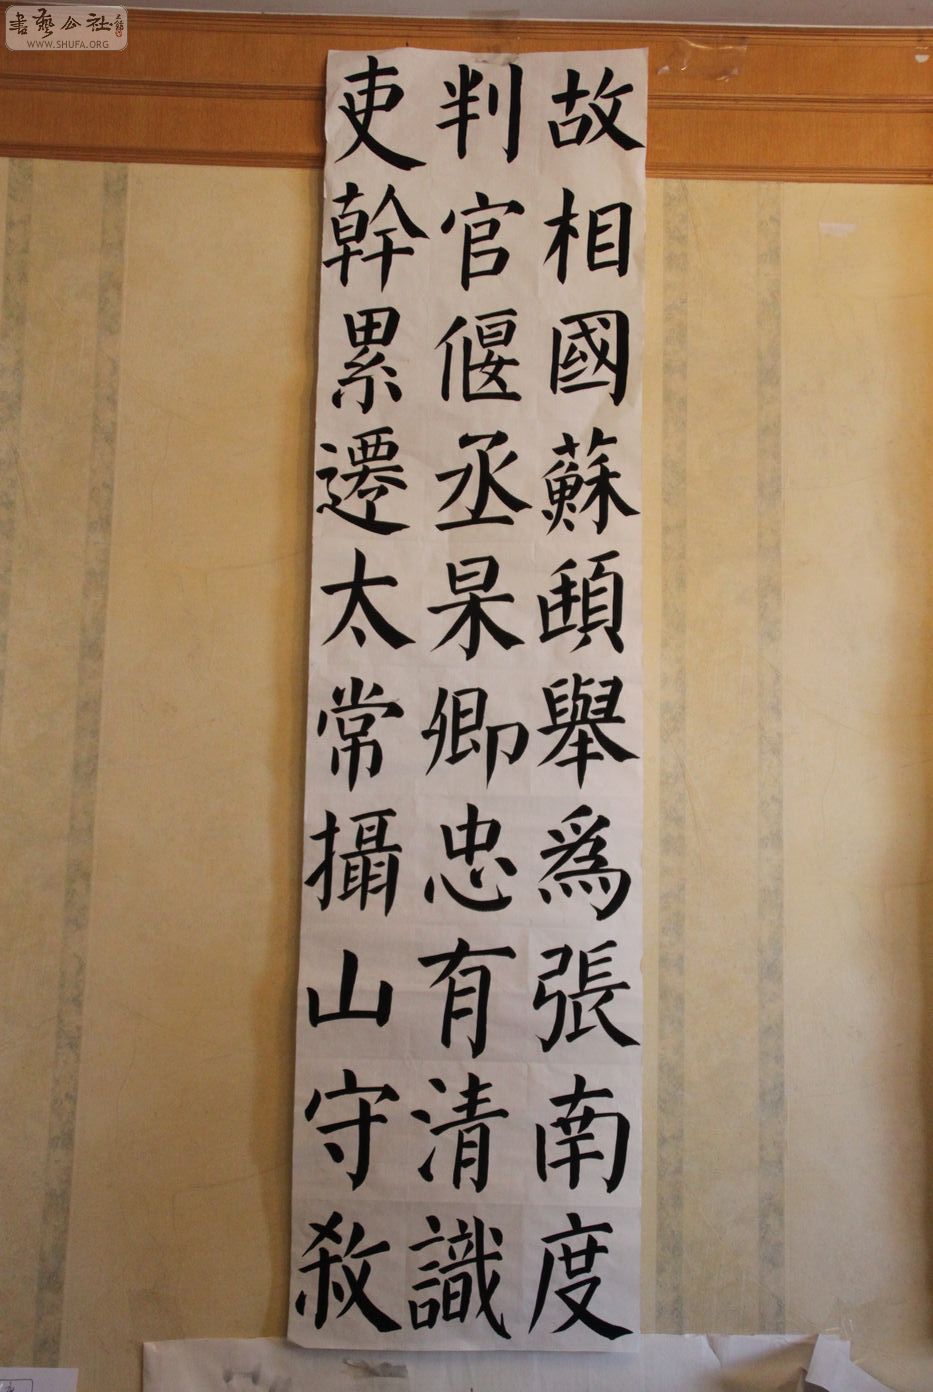 故相國蘇頲舉爲張南度
判官偃丞杲卿忠有清識
吏幹累遷太常攝山守敘
書藝公社
WWW.SHUFA.ORG